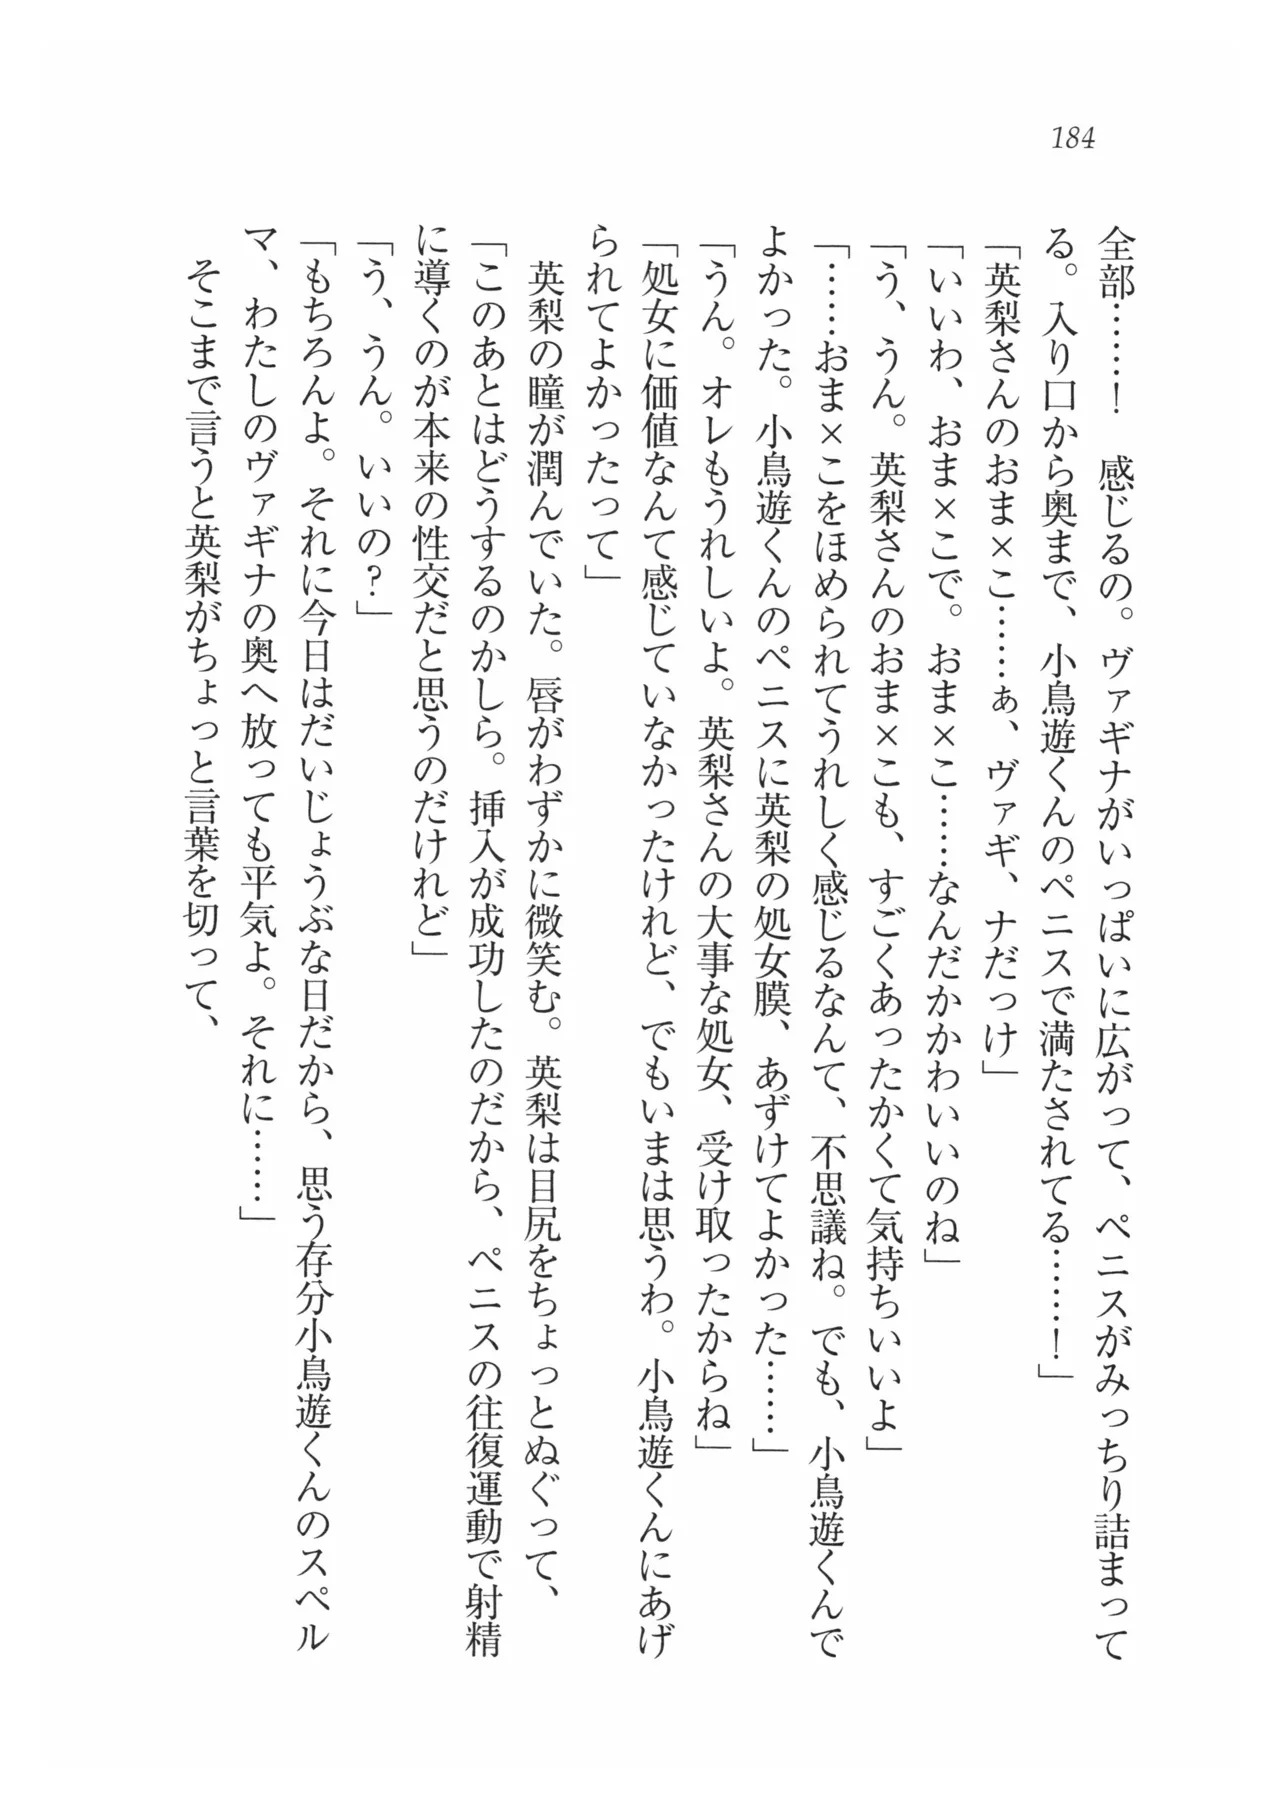 184
全部……！　感じるの。ヴァギナがいっぱいに広がって、ペニスがみっちり詰まって
る。入り口から奥まで、小鳥遊くんのペニスで満たされてる……！」
「英梨さんのおま×こ……ぁ、ヴァギ、ナだっけ」
「いいわ、おま×こで。おま×こ……なんだかかわいいのね」
「う、うん。英梨さんのおま×こも、すごくあったかくて気持ちいいよ」
「……おま×こをほめられてうれしく感じるなんて、不思議ね。でも、小鳥遊くんで
よかった。小鳥遊くんのペニスに英梨の処女膜、あずけてよかった……」
「うん。オレもうれしいよ。英梨さんの大事な処女、受け取ったからね」
「処女に価値なんて感じていなかったけれど、でもいまは思うわ。小鳥遊くんにあげ
られてよかったって」
　英梨の瞳が潤んでいた。唇がわずかに微笑む。英梨は目尻をちょっとぬぐって、
「このあとはどうするのかしら。挿入が成功したのだから、ペニスの往復運動で射精
に導くのが本来の性交だと思うのだけれど」
「う、うん。いいの？」
「もちろんよ。それに今日はだいじょうぶな日だから、思う存分小鳥遊くんのスペル
マ、わたしのヴァギナの奥へ放っても平気よ。それに……」
　そこまで言うと英梨がちょっと言葉を切って、